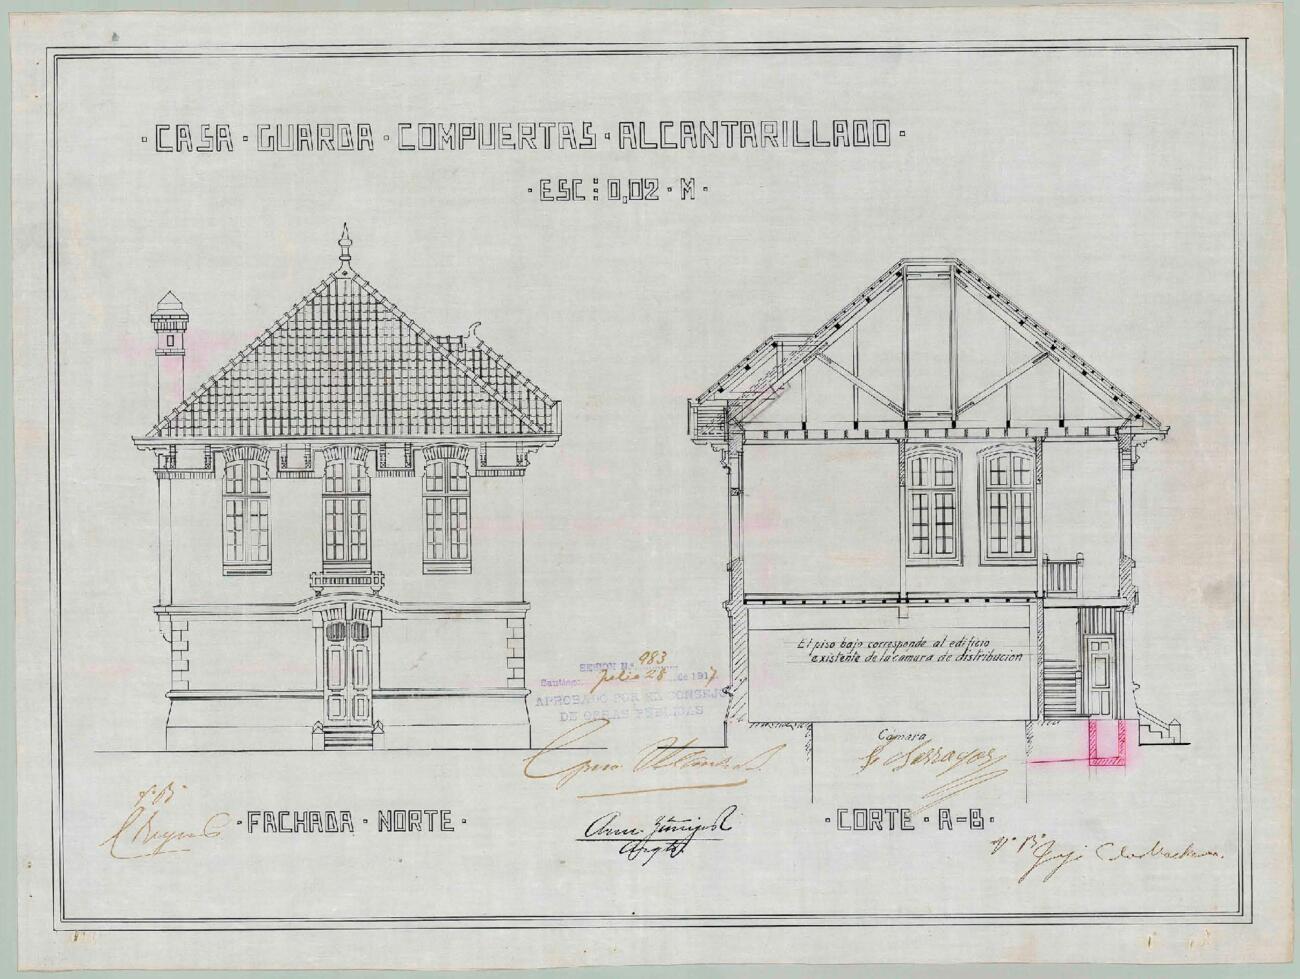 · CASA · GUARDA · COMPUERTAS · ALCANTARILLADO ·
· ESC: 0,02 · M ·
El piso bajo corresponde al edificio
existente de la cámara de distribucion
SESION N.° 983
Santiago, Julio 28 de 1917
APROBADO POR EL CONSEJO
DE OBRAS PUBLICAS
Cámara
Vº Bº
· FACHADA · NORTE ·
· CORTE · A-B ·
Vº Bº